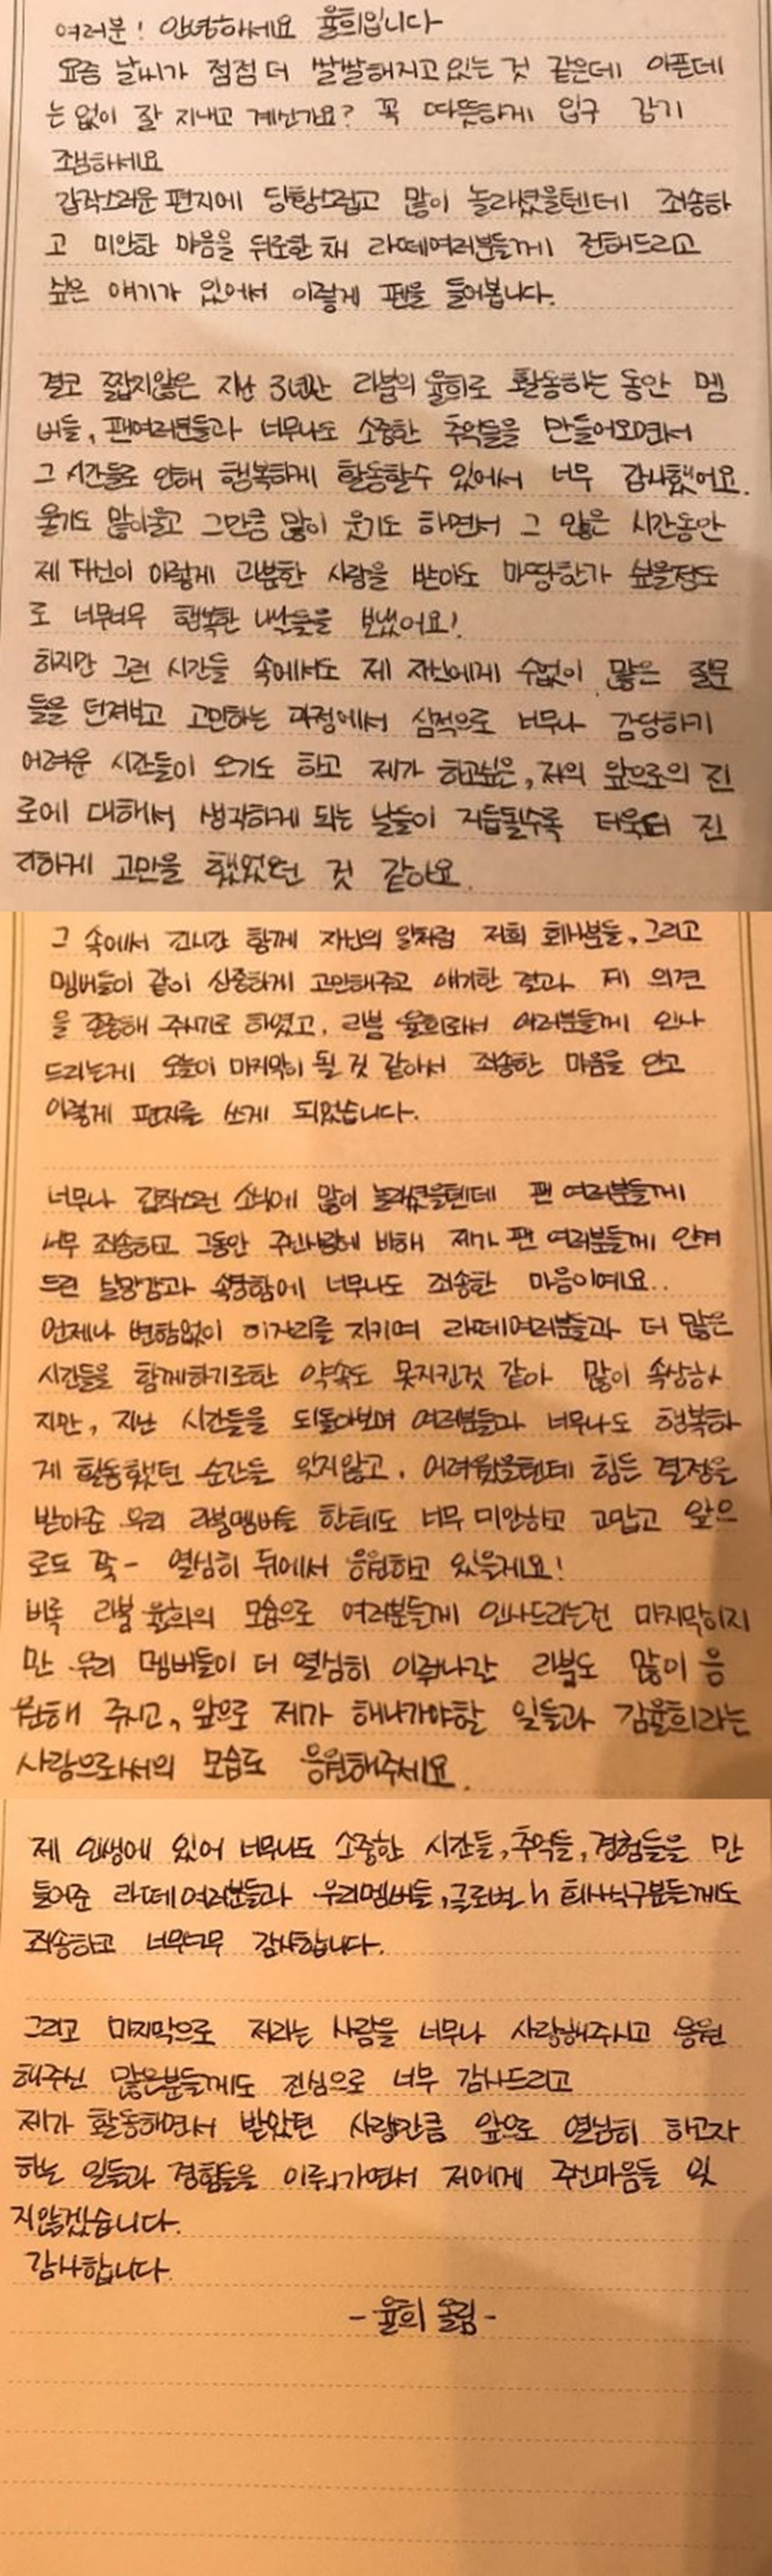 여러분! 안녕하세요 율희입니다
요즘 날씨가 점점 더 쌀쌀해지고 있는 것 같은데 아픈데
는 없이 잘 지내고 계신가요? 꼭 따뜻하게 입구 감기
조심하세요
갑작스러운 편지에 당황스럽고 많이 놀라셨을텐데 죄송하
고 미안한 마음을 뒤로한 채 라떼여러분들께 전해드리고
싶은 얘기가 있어서 이렇게 펜을 들어봅니다.
결코 짧지않은 지난 3년간 라붐의 율희로 활동하는 동안 멤
버들, 팬여러분들과 너무나도 소중한 추억들을 만들어오면서
그 시간들로 인해 행복하게 활동할수 있어서 너무 감사했어요.
울기도 많이울고 그만큼 많이 웃기도 하면서 그 많은 시간동안
제 자신이 이렇게 과분한 사랑을 받아도 마땅한가 싶을정도
로 너무너무 행복한 나날들을 보냈어요!
하지만 그런 시간들 속에서도 제 자신에게 수없이 많은 질문
들을 던져보고 고민하는 과정에서 심적으로 너무나 감당하기
어려운 시간들이 오기도 하고 제가 하고싶은, 저의 앞으로의 진
로에 대해서 생각하게 되는 날들이 거듭될수록 더욱더 진
지하게 고민을 했었던 것 같아요.
그 속에서 긴시간 함께 자신의 일처럼 저희 회사분들, 그리고
멤버들이 같이 신중하게 고민해주고 얘기한 결과 제 의견
을 존중해 주시기로 하였고, 라붐 율희로서 여러분들께 인사
드리는게 오늘이 마지막이 될 것 같아서 죄송한 마음을 안고
이렇게 편지를 쓰게 되었습니다.
너무나 갑작스런 소식에 많이 놀라셨을텐데 팬 여러분들께
너무 죄송하고 그동안 주신사랑에 비해 제가 팬 여러분들께 안겨
드린 실망감과 속상함에 너무나도 죄송한 마음이예요..
언제나 변함없이 이자리를 지키며 라떼여러분들과 더 많은
시간들을 함께하기로한 약속도 못지킨것 같아 많이 속상하
지만, 지난 시간들을 되돌아보며 여러분들과 너무나도 행복하
게 활동했던 순간들 잊지않고, 어려웠을텐데 힘든 결정을
받아준 우리 라붐멤버들 한테도 너무 미안하고 고맙고 앞으
로도 쭉- 열심히 뒤에서 응원하고 있을게요!
비록 라붐 율희의 모습으로 여러분들께 인사드리는건 마지막이지
만 우리 멤버들이 더 열심히 이뤄나간 라붐도 많이 응
원해 주시고, 앞으로 제가 해나가야할 일들과 김율희라는
사람으로서의 모습도 응원해주세요.
제 인생에 있어 너무나도 소중한 시간들, 추억들, 경험들을 만
들어준 라떼여러분들과 우리멤버들, 글로벌 h 회사식구분들께도
죄송하고 너무너무 감사합니다.
그리고 마지막으로 저라는 사람을 너무나 사랑해주시고 응원
해주신 많은분들께도 진심으로 너무 감사드리고
제가 활동하면서 받았던 사랑만큼 앞으로 열심히 하고자
하는 일들과 경험들을 이뤄가면서 저에게 주신마음들 잊
지않겠습니다.
감사합니다.
- 율희 올림 -